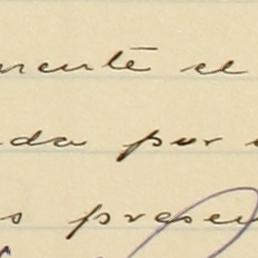 mente el
da por
s presen